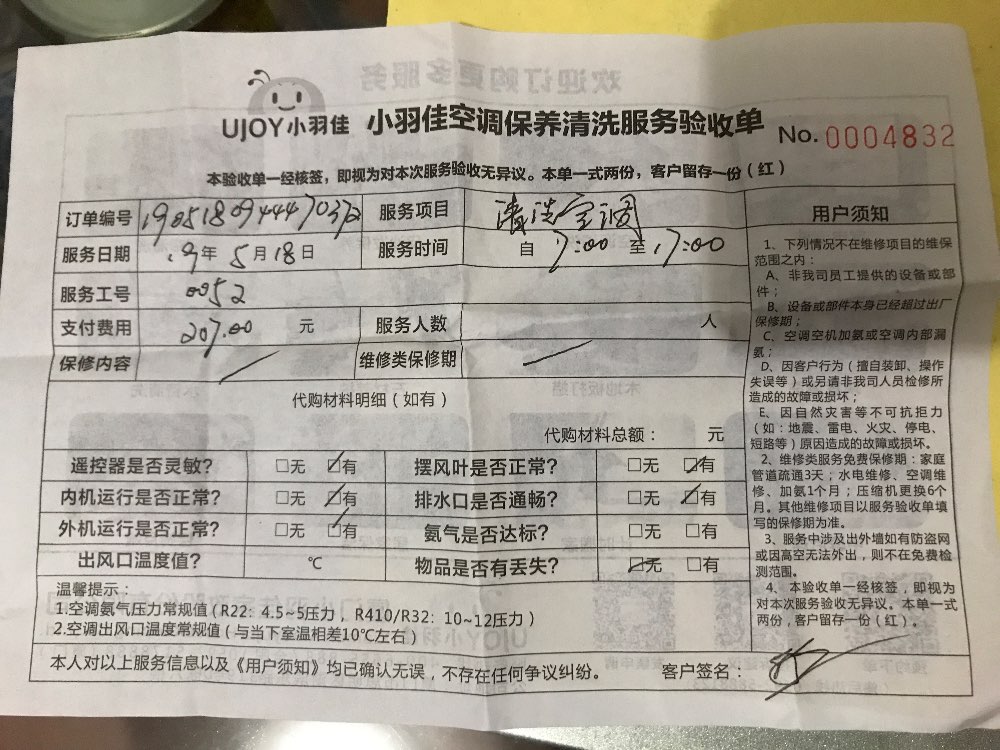 UJOY小羽佳 小羽佳空调保养清洗服务验收单 No. 0004832
本验收单一经核签，即视为对本次服务验收无异议。本单一式两份，客户留存一份（红）
订单编号 服务项目 清洗空调
服务日期 19年 5月18日 服务时间 自 17:00 至 17:00
服务工号 0052
支付费用 207.00 元 服务人数 人
保修内容 维修类保修期
代购材料明细（如有）
代购材料总额： 元
遥控器是否灵敏? □无 ☑有 摆风叶是否正常? □无 ☑有
内机运行是否正常? □无 ☑有 排水口是否通畅? □无 ☑有
外机运行是否正常? □无 ☑有 氨气是否达标? □无 □有
出风口温度值? ℃ 物品是否有丢失? ☑无 □有
温馨提示：
1.空调氨气压力常规值（R22: 4.5~5压力， R410/R32: 10~12压力）
2.空调出风口温度常规值（与当下室温相差10℃左右）
本人对以上服务信息以及《用户须知》均已确认无误，不存在任何争议纠纷。 客户签名：
用户须知
1、下列情况不在维修项目的维保
范围之内：
A、非我司员工提供的设备或部
件；
B、设备或部件本身已经超过出厂
保修期；
C、空调空机加氨或空调内部漏
氨；
D、因客户行为（擅自装卸、操作
失误等）或另请非我司人员检修所
造成的故障或损坏；
E、因自然灾害等不可抗拒力
（如：地震、雷电、火灾、停电、
短路等）原因造成的故障或损坏。
2、维修类服务免费保修期：家庭
管道疏通3天；水电维修、空调维
修、加氨1个月；压缩机更换6个
月。其他维修项目以服务验收单填
写的保修期为准。
3、服务中涉及出外墙如有防盗网
或因高空无法外出，则不在免费检
测范围。
4、本验收单一经核签，即视为
对本次服务验收无异议。本单一式
两份，客户留存一份（红）。